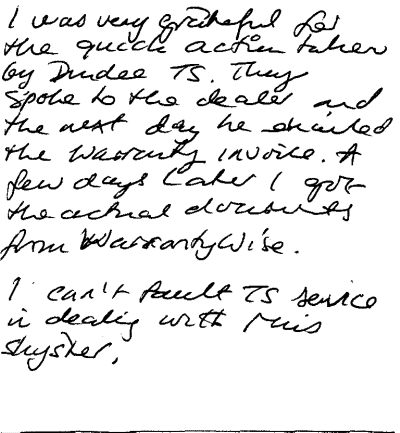 I was very grateful for
the quick action taken
by Dundee TS. They
spoke to the dealer and
the next day he emailed
the warranty invoice. A
few days later I got
the actual documents
from WarrantyWise.

I can't fault TS service
in dealing with this
shyster.